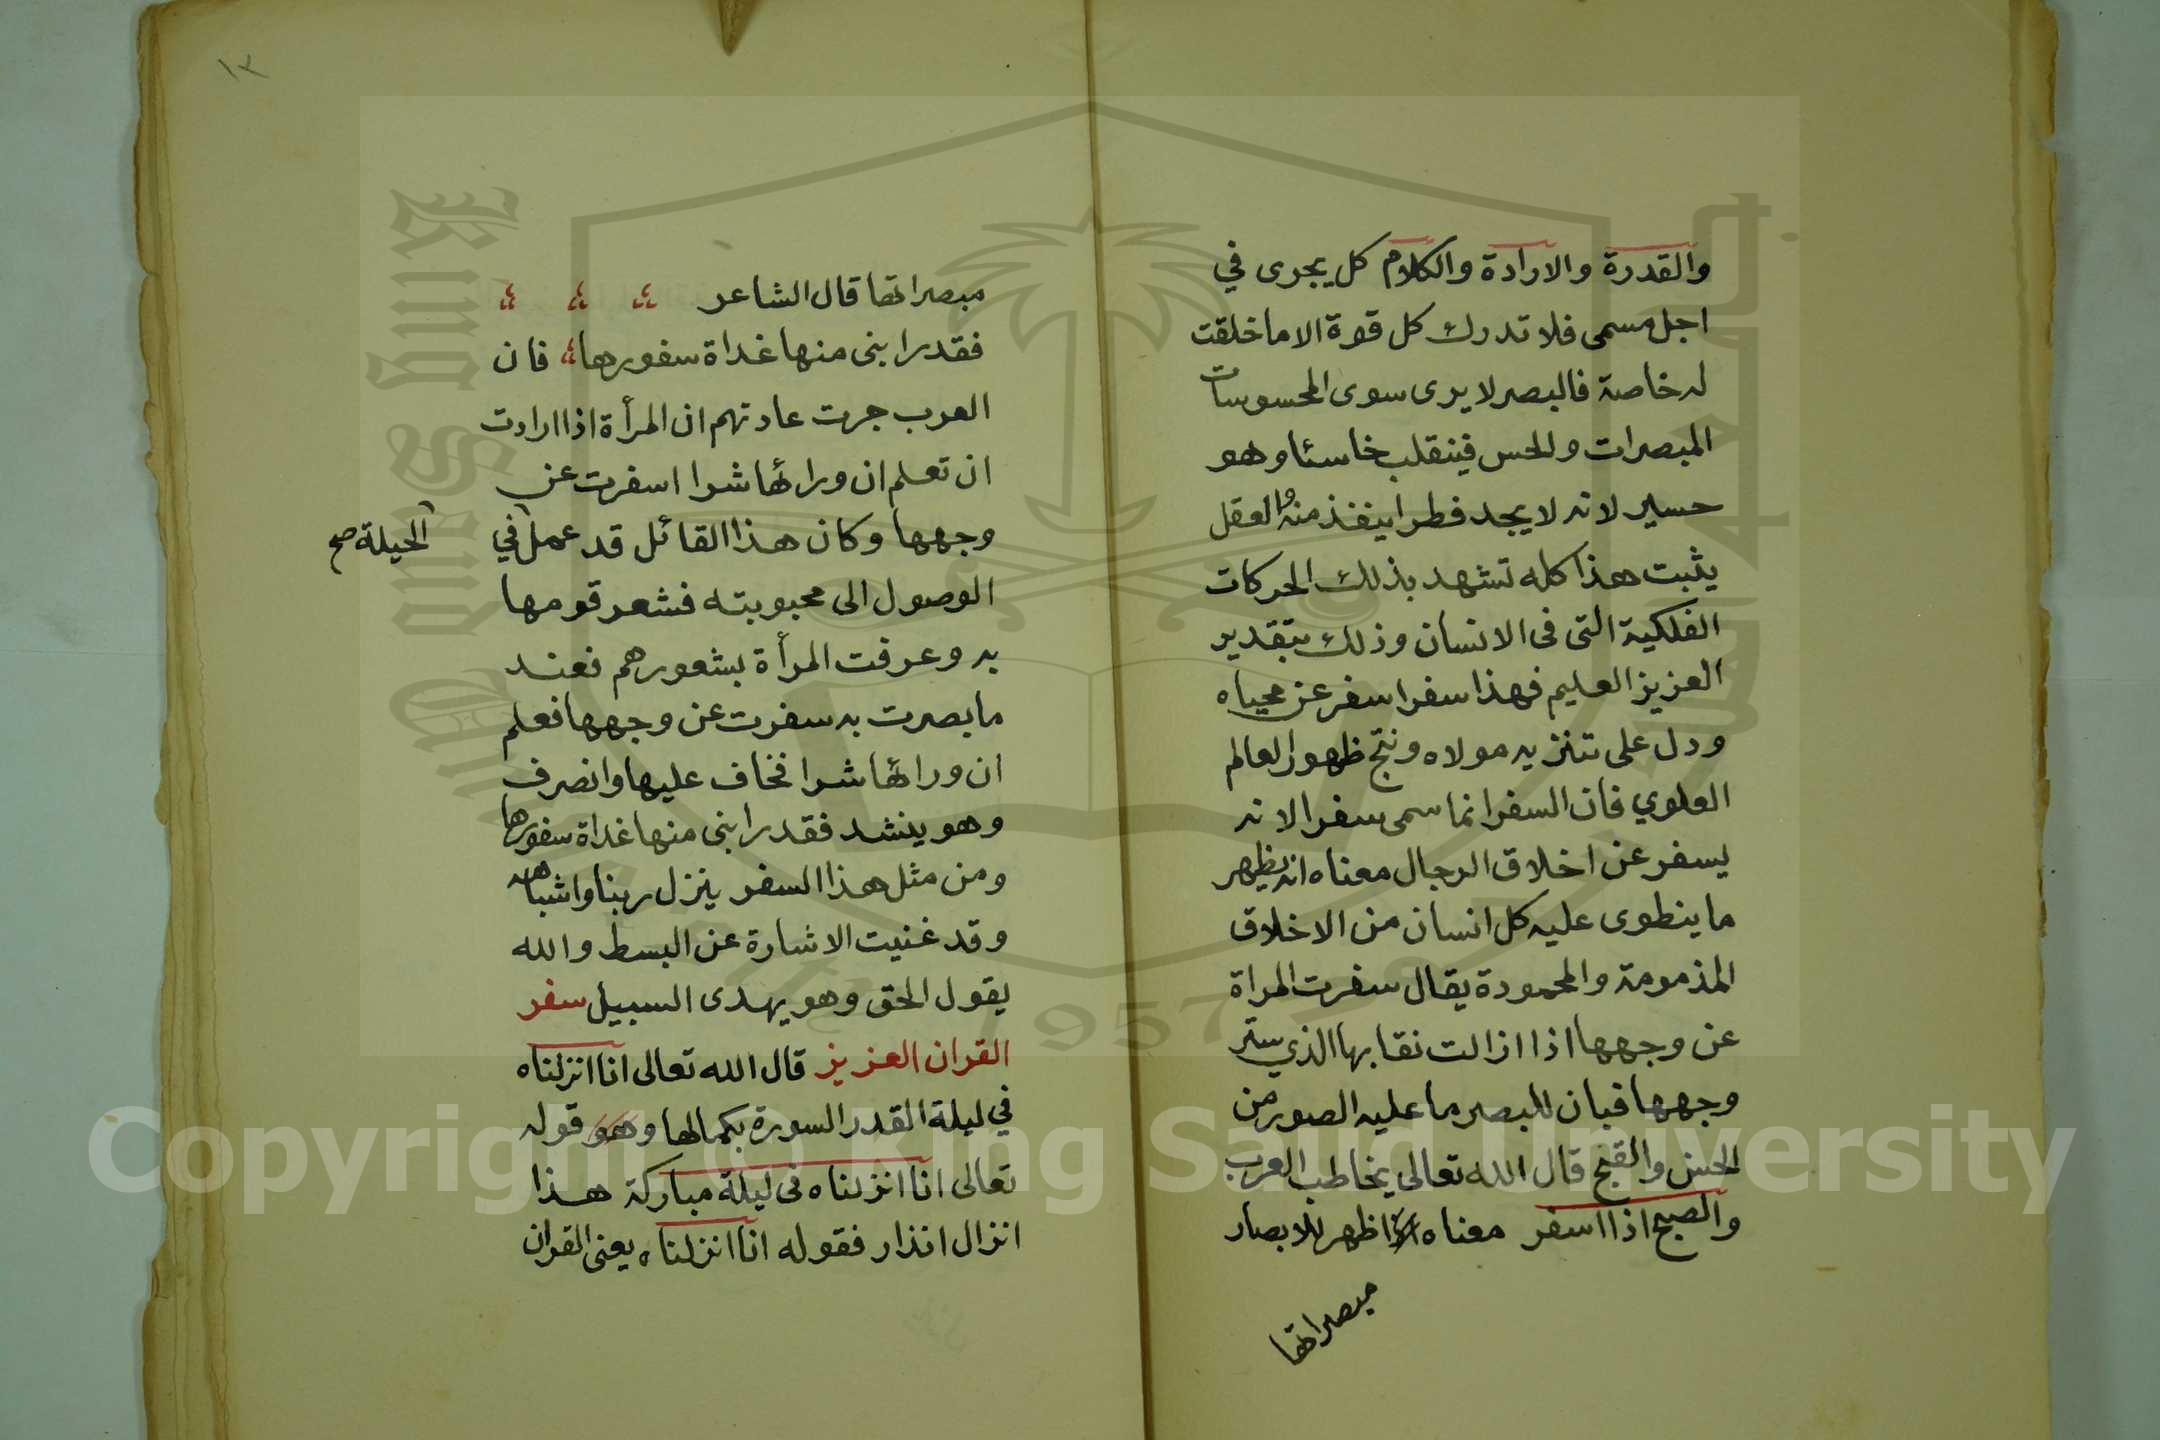 والقدرة والارادة والكلام كل يجرى في
اجل مسمى فلا تدرك كل قوة الا ما خلقت
له خاصة فالبصر لا يرى سوى المحسوسات
المبصرات والحس فينقلب خاسئا وهو
حسير لانه لا يجد فطرا ينفذ منه والعقل
يثبت هذا كله تشهد بذلك الحركات
الفلكية التى فى الانسان وذلك بتقدير
العزيز العليم فهذا سفر اسفر عن محياه
ودل على تنزيه مولاه ونتج ظهور العالم
العلوي فان السفر انما سمى سفرا لانه
يسفر عن اخلاق الرجال معناه انه يظهر
ما ينطوى عليه كل انسان من الاخلاق
المذمومة والمحمودة يقال سفرت المراة
عن وجهها اذا ازالت نقابها الذي ستر
وجهها فبان للبصر ما عليه الصور من
الحسن والقبح قال الله تعالى يخاطب العرب
والصبح اذا اسفر معناه اظهر للابصار
مبصراتها
١٢
مبصراتها قال الشاعر
فقد رابنى منها غداة سفورها فان
العرب جرت عادتهم ان المرأة اذا ارادت
ان تعلم ان ورائها شرا اسفرت عن
وجهها وكان هذا القائل قد عمل في
الحيلة صح
الوصول الى محبوبته فشعر قومها
به وعرفت المرأة بشعورهم فعند
ما بصرت به سفرت عن وجهها فعلم
ان ورائها شرا فخاف عليها وانصرف
وهو ينشد فقد رابنى منها غداة سفورها
ومن مثل هذا السفر ينزل ربنا واشباهه
وقد غنيت الاشارة عن البسط والله
يقول الحق وهو يهدى السبيل سفر
القران العزيز قال الله تعالى انا انزلناه
في ليلة القدر السورة بكمالها وهو قوله
تعالى انا انزلناه فى ليلة مباركة هذا
انزال انذار فقوله انا انزلناه يعنى القران
King Saud University
1957
Copyright © King Saud University